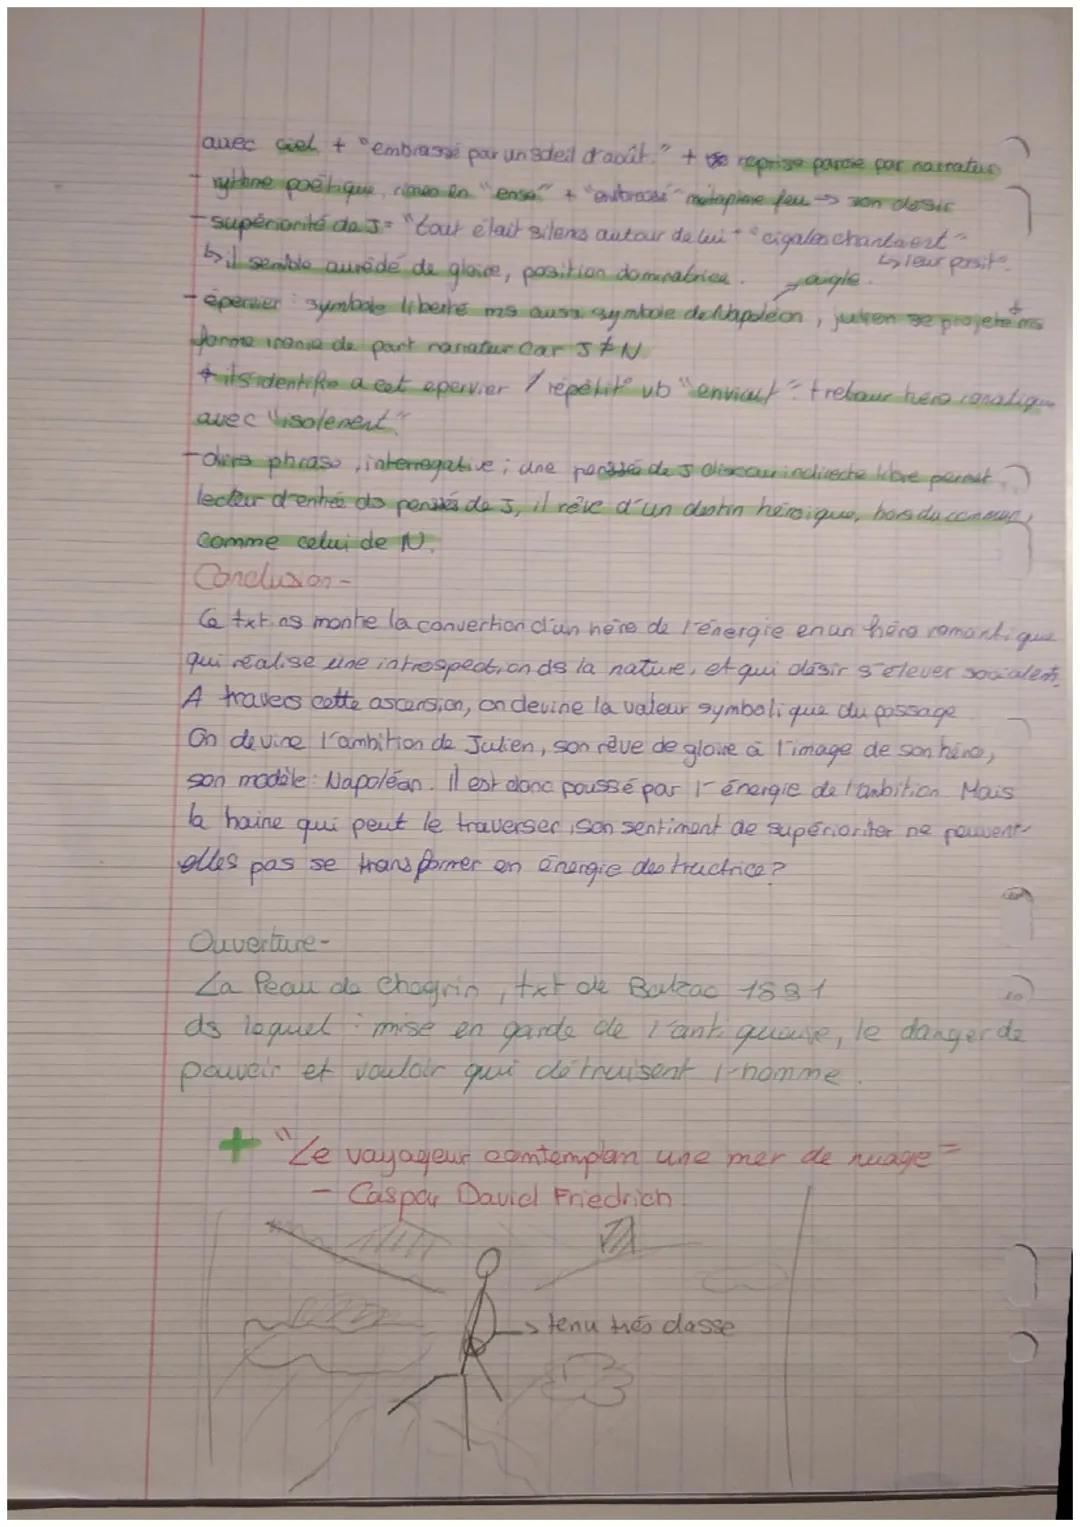 avec ciel + "embrassé par un soleil d'août." + reprise parole par narrateur
+ rythme poétique, rimes en "ense" + "embrassé" métaphore feu → son désir
- supériorité de J = "tout était silence autour de lui" + "cigales chantaient"
↳ il semble auréolé de gloire, position dominatrice. ↳ leur posit°.
aigle.
- épervier : symbole liberté ms aussi symbole de Napoléon, julien se projete + ms
forme ironie de part narrateur car J ≠ N
+ il s'identifie a cet epervier / répétit° vb "enviait" + retour héro romatique
avec "isolement"
- dire phrase, interrogative ; une pensée de J discour indirecte libre permet
lecteur d'entrée ds pensés de J, il rêve d'un destin héroïque, hors du commun,
comme celui de N.
Conclusion -
Ce txt ns montre la convertion d'un héro de l'énergie en un héro romantique
qui réalise une introspection ds la nature, et qui désir s'élever socialemt.
A travers cette ascension, on devine la valeur symbolique du passage
On devine l'ambition de Julien, son rêve de gloire à l'image de son héro,
son modèle : Napoléon. Il est donc poussé par l'énergie de l'ambition. Mais
la haine qui peut le traverser, son sentiment de supérioriter ne peuvent-
elles pas se transformer en énergie destructrice ?
Ouverture -
La Peau de Chagrin, txt de Balzac 1831
ds lequel : mise en garde de l'antiquaire, le danger de
pouvoir et vouloir qui détruisent l'homme.
+ "Le voyageur comtemplan une mer de nuage"
- Caspar David Friedrich
→ tenu très classe